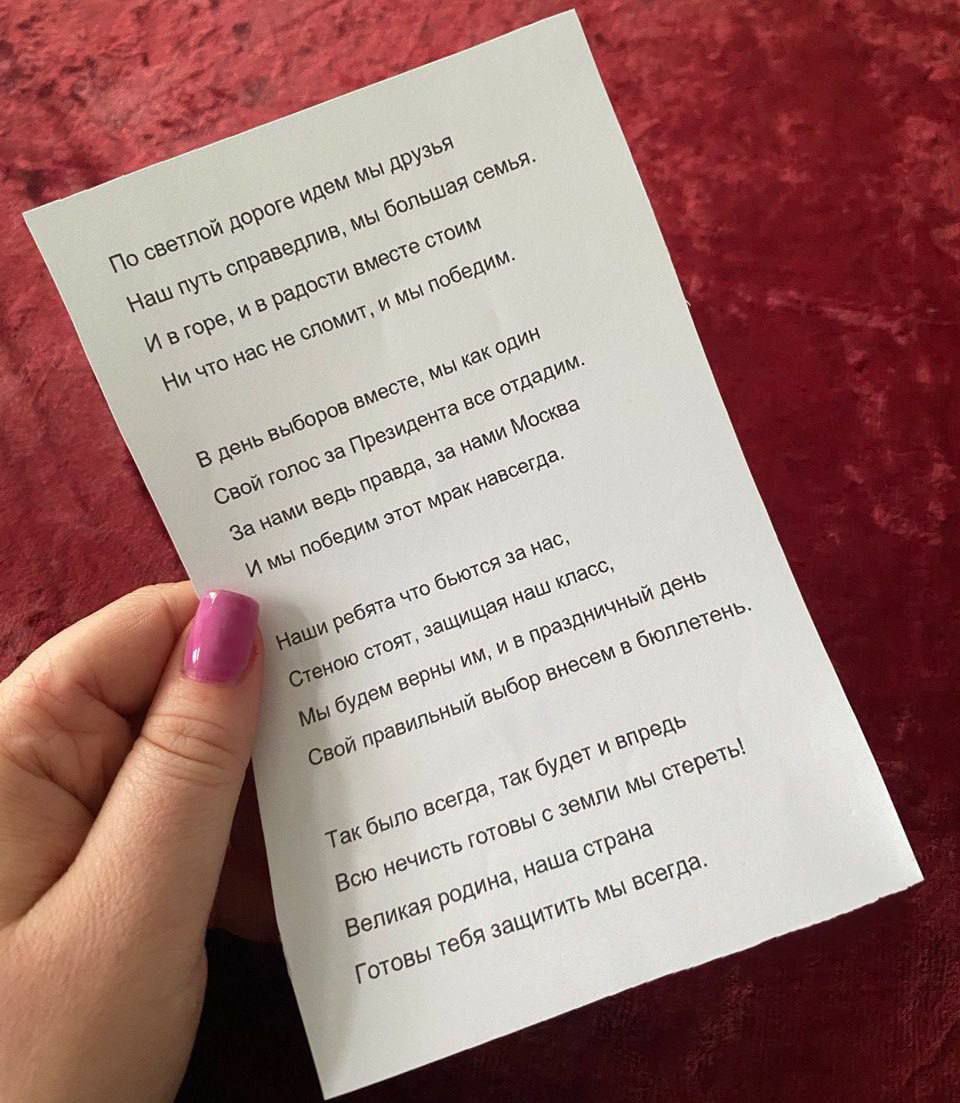 По светлой дороге идем мы друзья
Наш путь справедлив, мы большая семья.
И в горе, и в радости вместе стоим
Ни что нас не сломит, и мы победим.
В день выборов вместе, мы как один
Свой голос за Президента все отдадим.
За нами ведь правда, за нами Москва
И мы победим этот мрак навсегда.
Наши ребята что бьются за нас,
Стеною стоят, защищая наш класс,
Мы будем верны им, и в праздничный день
Свой правильный выбор внесем в бюллетень.
Так было всегда, так будет и впредь
Всю нечисть готовы с земли мы стереть!
Великая родина, наша страна
Готовы тебя защитить мы всегда.